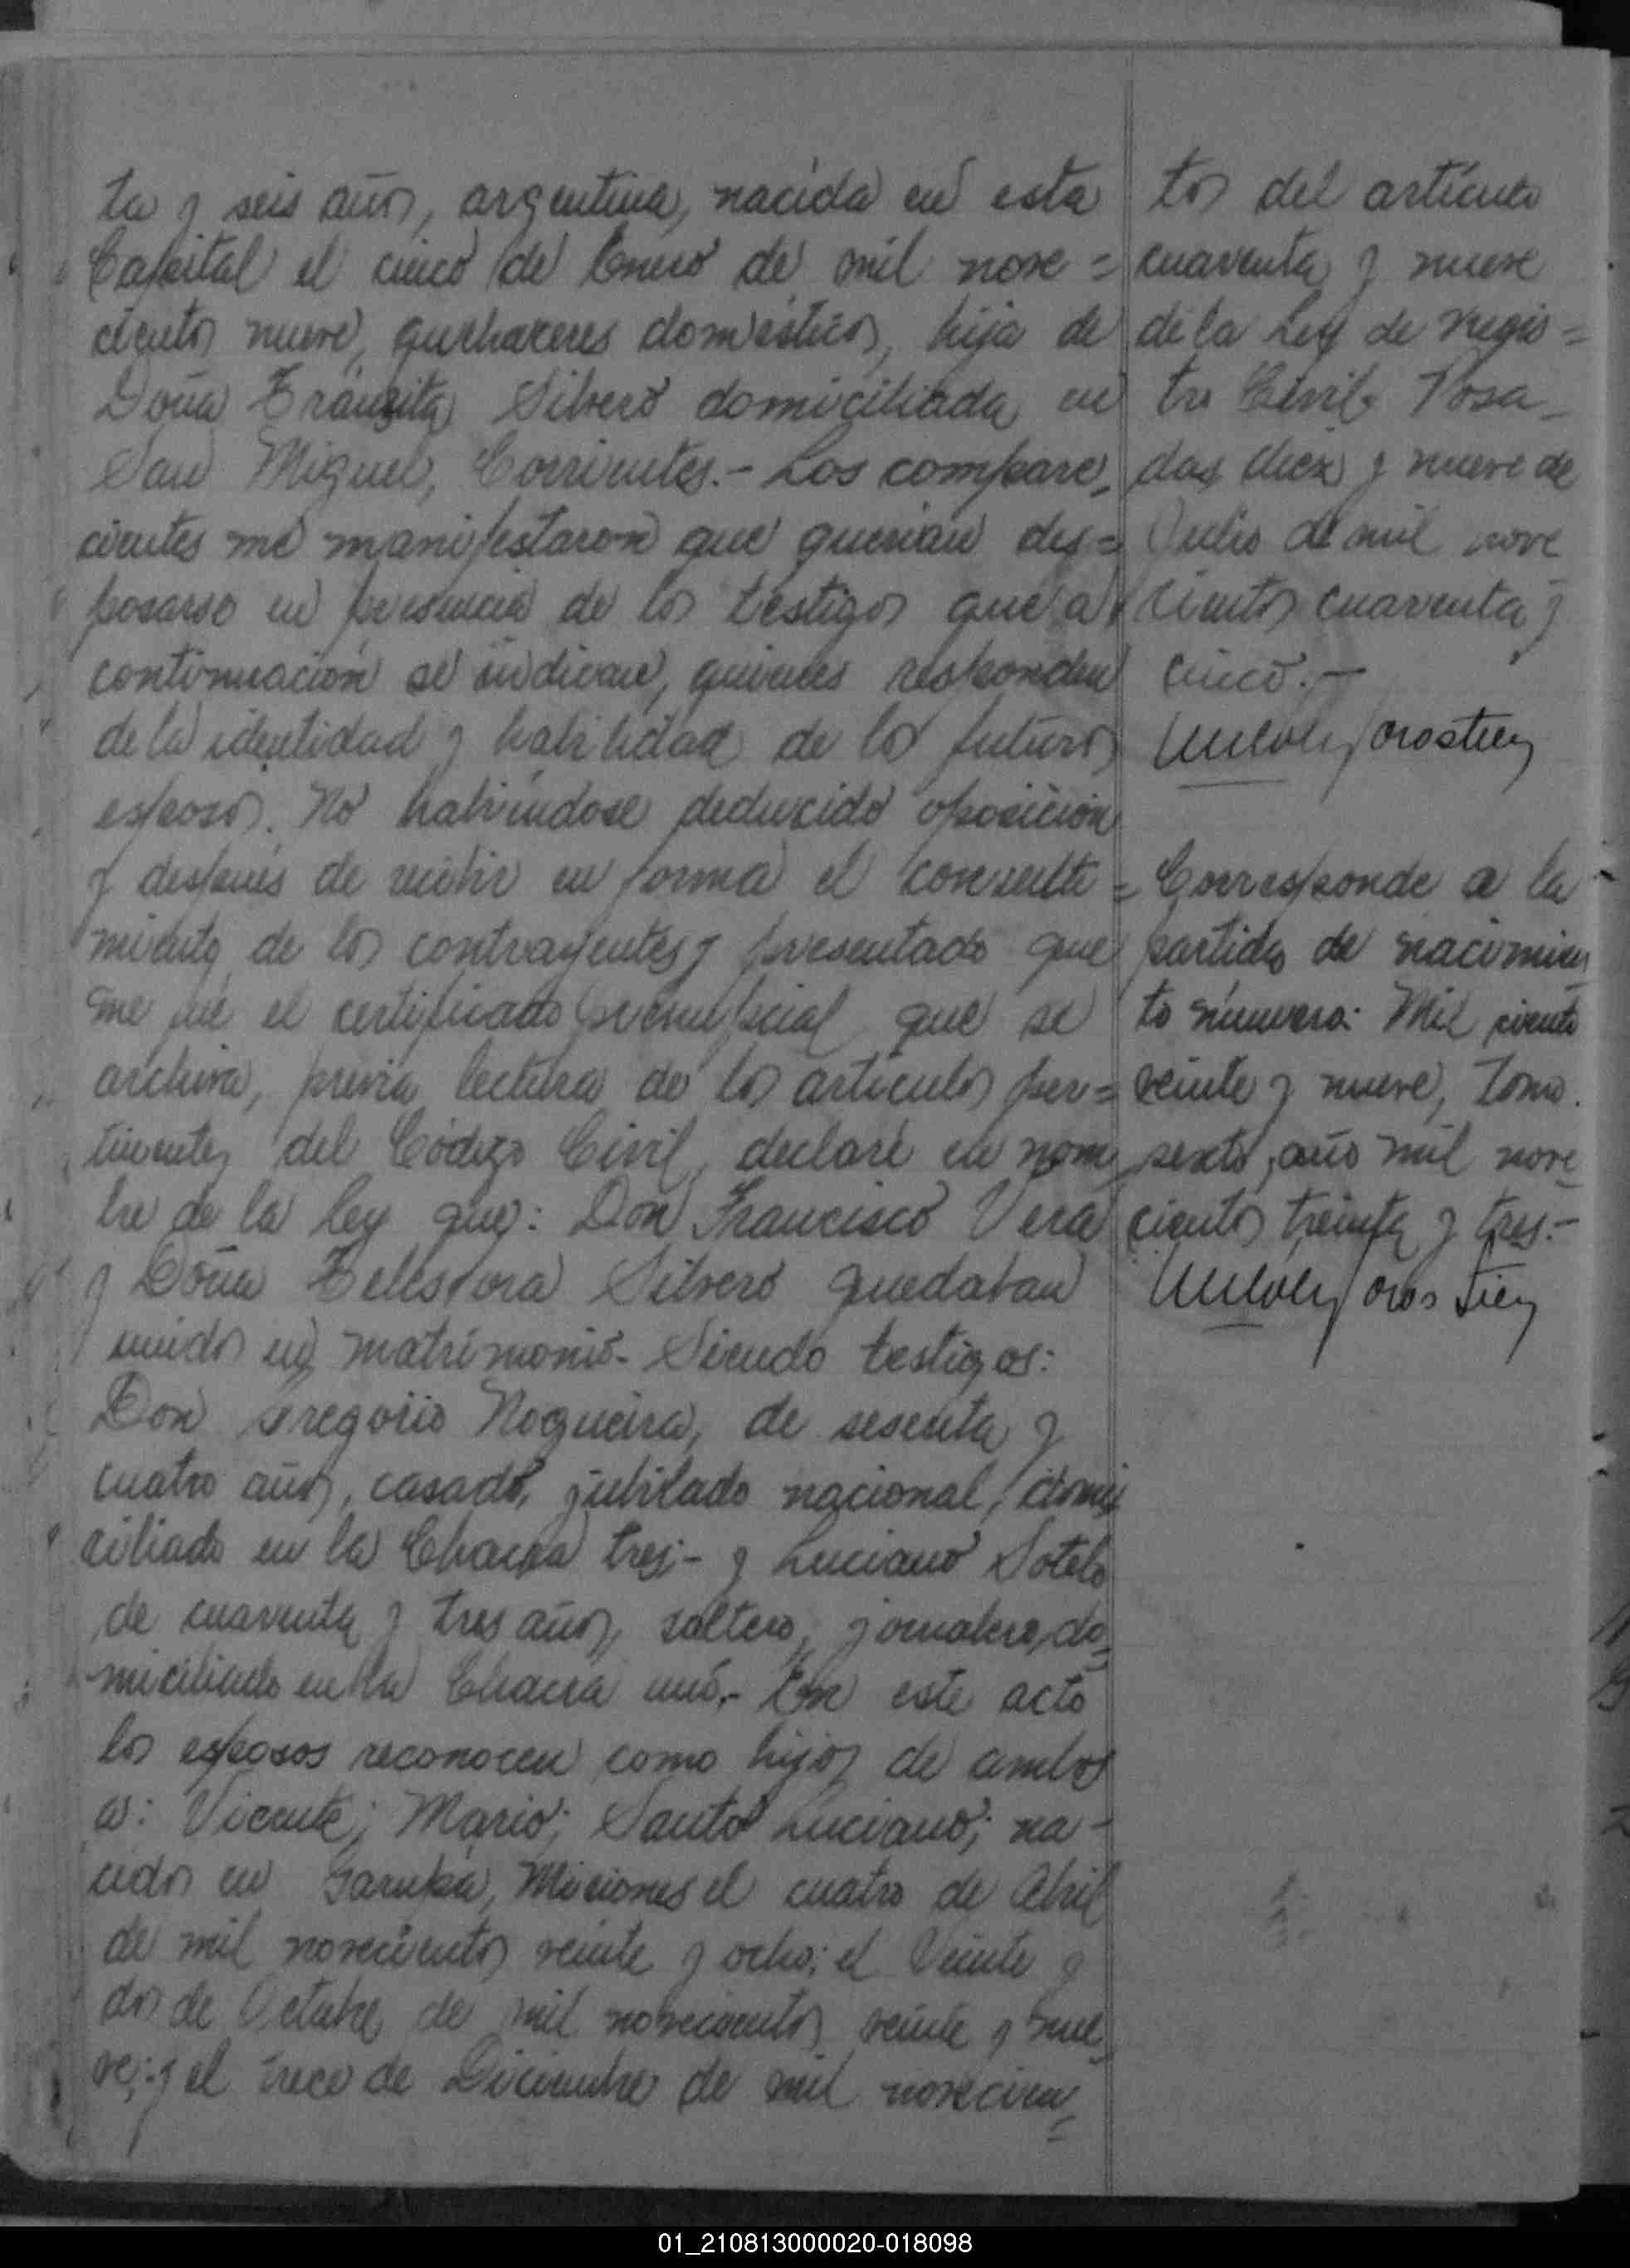 ta y seis años, argentina, nacida en esta
Capital el cinco de Enero de mil nove=
cientos nueve, quehaceres domésticos, hija de
Doña Tránsita Silvero domiciliada en
San Miguel, Corrientes.- Los compare_
cientes me manifestaron que querian des=
posarse en presencia de los testigos que a
continuación se indican, quienes responden
de la identidad y habilidad de los futuros
esposos. No habiéndose deducido oposición
y después de recibir en forma el consenti=
miento de los contrayentes y presentado que
me fué el certificado prenupcial que se
archiva, previa lectura de los artículos per=
tinentes del Código Civil, declaré en nom_
bre de la ley que: Don Francisco Vera
y Doña Telesfora Silvero quedaban
unidos en matrimonio- Siendo testigos:
Don Gregorio Nogueira, de sesenta y
cuatro años, casado, jubilado nacional, domi_
ciliado en la Chacra tres;- y Luciano Sotelo
de cuarenta y tres años, soltero, jornalero, do_
miciliado en la Chacra uno.- En este acto
los esposos reconocen como hijos de ambos
a: Vicente; Mario; Santo Luciano; na-
cidos en Garupá, Misiones el cuatro de Abril
de mil novecientos veinte y ocho; el Veinte y
dos de Octubre de mil novecientos veinte y nue_
ve; y el trece de Diciembre de mil novecien_
tos del artículo
cuarenta y nueve
de la Ley de Regis=
tro Civil. Posa_
das, diez y nueve de
Julio de mil nove
cientos cuarenta y
cinco.-
Corresponde a la
partida de nacimien
to número: Mil ciento
veinte y nueve, Tomo
sexto, año mil nove_
cientos treinta y tres.-
01_210813000020-018098